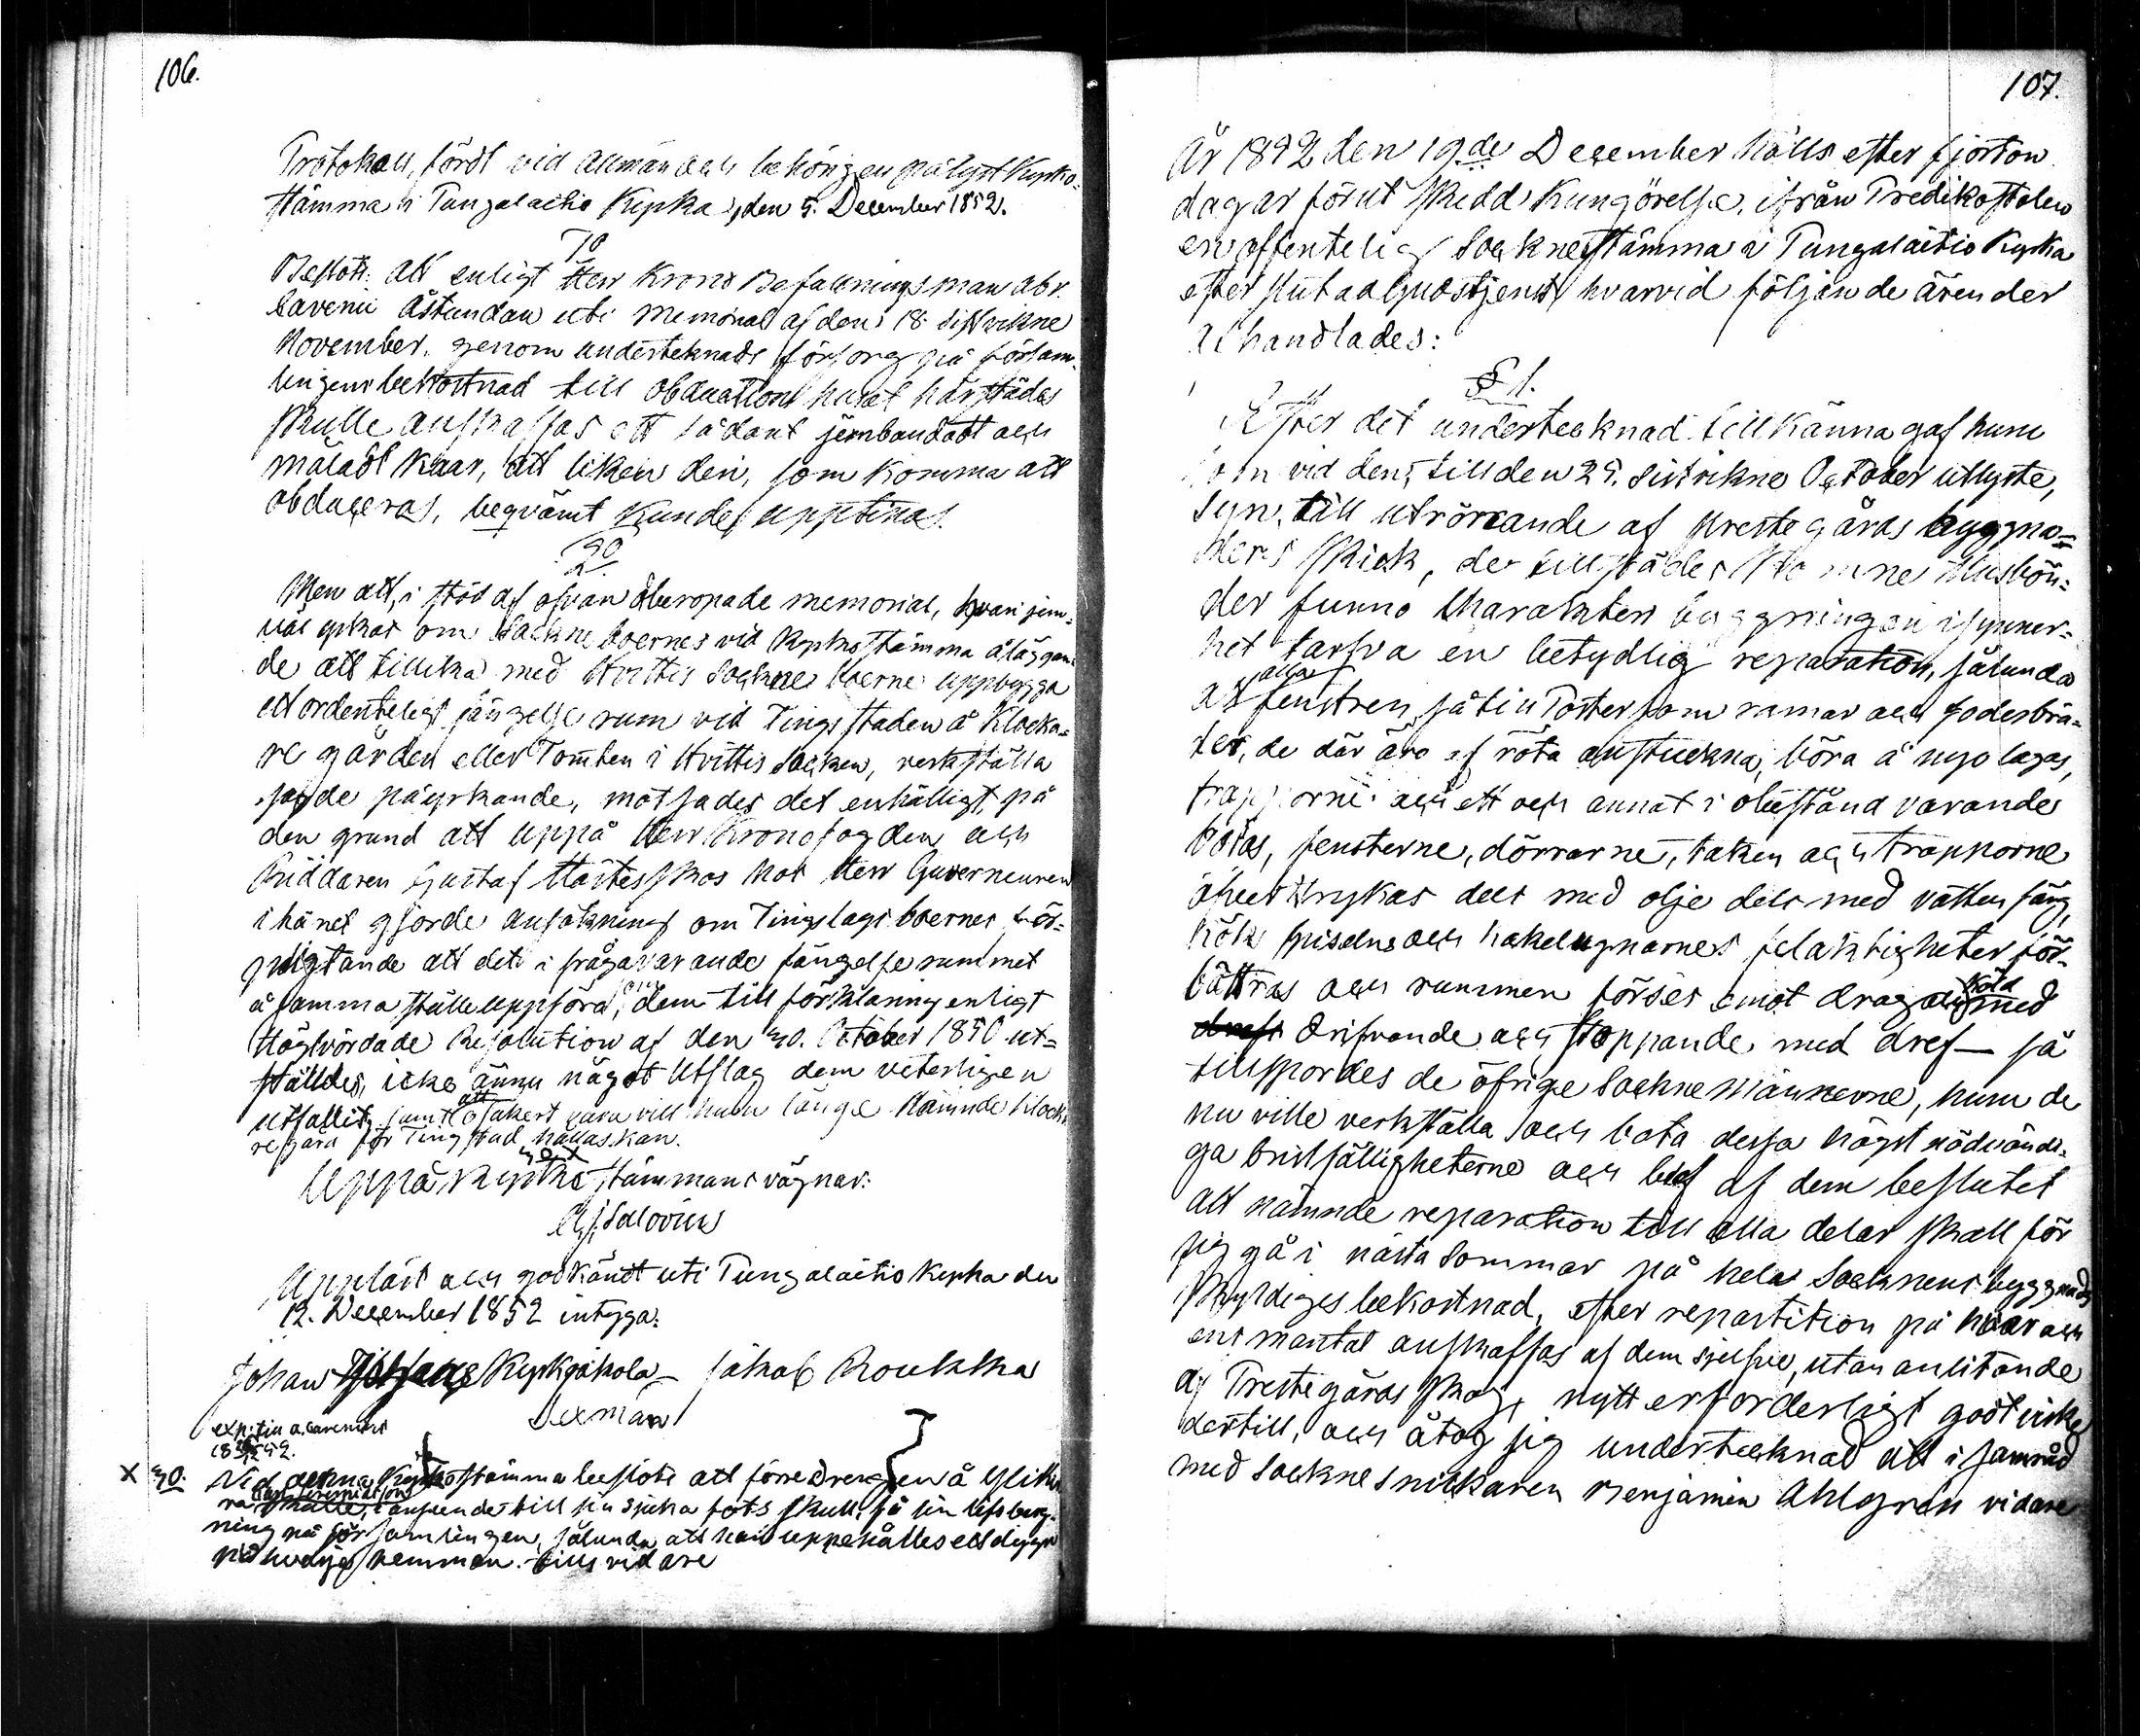 106.
Protokoll, fördt vid allmän och behörigen pålyst Kyrko-
stämma i Pungalaitio Kyrka, den 5. December 1852.
1o
Beslöts: att enligt Herr Krono Befallningsman Abr.
Cavenii åstundan uti Memorial af den 18 sistvikne
November, genom undertecknads försorg på försam-
lingens bekostnad till obduktions huset härstädes
skulle anskaffas ett sådant jernbandadt och
måladt kaar, att liken deri, som komma att
obduceras, beqvämt kunde upptinas.
2o
Men att, i stöd af ofvan åberopade memorial, hvari jem-
väl yrkas om Sockneboernes vid Kyrkostämma åläggan-
de att tillika med Hvittis Sockne boerne uppbygga
ett ordenteligt fängelse rum vid Tingsstaden å Klocka-
re gården eller Tomten i Hvittis Socken, verkställa
sagde påyrkande, motsades det enhälligt, på
den grund att uppå Herr Kronofogden och
Riddaren Gustaf Hästeskos hos Herr Guverneuren
i länet gjorde ansökning om Tingslags boernes för-
pligtande att det i fråga varande fängelse rummet
å samma ställe uppföra, dem till förklaring enligt
Högvördade Resolution af den 30. October 1850 ut-
ställdes, icke ännu något Utslag dem veterligen
utfallit, samt att osäkert vara vill huru länge nämnde Klocka-
regård för Tingsstad hållas kan.
3o x
Uppå Kyrkostämmans vägnar:
Gj. Salovius
Uppläst och godkändt uti Pungalaitio Kyrka den
12. December 1852 intyga:
Johan Kyrkjäkola – Jakob Roukkka
Sexman
exp. till A. Cavenius
18 52.
x 3o. Vid denna Kyrkostämma beslöts att förre drengen å
ra skulle, i anseende till sin sjuka fots skull, få sin lifsberg-
ning på församlingen, sålunda att han uppehålles ett dygn
på hvarje hemman tills vidare
107.
År 1852 den 19de December hölls efter fjorton
dagar förut skedd Kungörelse, ifrån Predikostolen
en offentelig Socknestämma i Pungalaitio Kyrka
efter slutad Gudstjenst, hvarvid följande ärender
afhandlades:
§ 1.
Efter det undertecknad tillkänna gaf huru
som vid den, till den 25. sistvikne October utlyste,
Syn, till utrönande af prestegårds byggna-
ders skick, de tillstädes komne Husbön-
der funno Karakters byggningen i synner-
het tarfva en betydlig reparation, sålunda
at alla fenstren så till Poster som ramar och foderbrä-
der, de där äro af röta anstuckna, böra å nyo lagas,
trapporne och ett och annat i olestånd varandes
botas, fensterne, dörrarne, taken och trapporne
åter strykas dels med olje dels med vatten färg,
köks spiselns och kakelugnarnes felaktigheter för-
bättras och rummen förses emot drag och köld med
drifvande och stoppande med dref — så
tillspordes de öfrige Socknemännerne, huru de
nu ville verkställa och bota dessa högst nödvändi-
ga bristfälligheterne och blef af dem beslutet
att nämnde reparation till alla delar skall för
sig gå i nästa Sommar på hela Socknens byggnads
skyldiges bekostnad, efter repartition på hvar och
ens mantal anskaffas af dem sjelfve, utan anlitande
af Prestegårds skog, nytt erforderligt godt virke
dertill, och åtog sig undertecknad att i samråd
med Socknesnickaren Benjamin Ahlgrén vidare